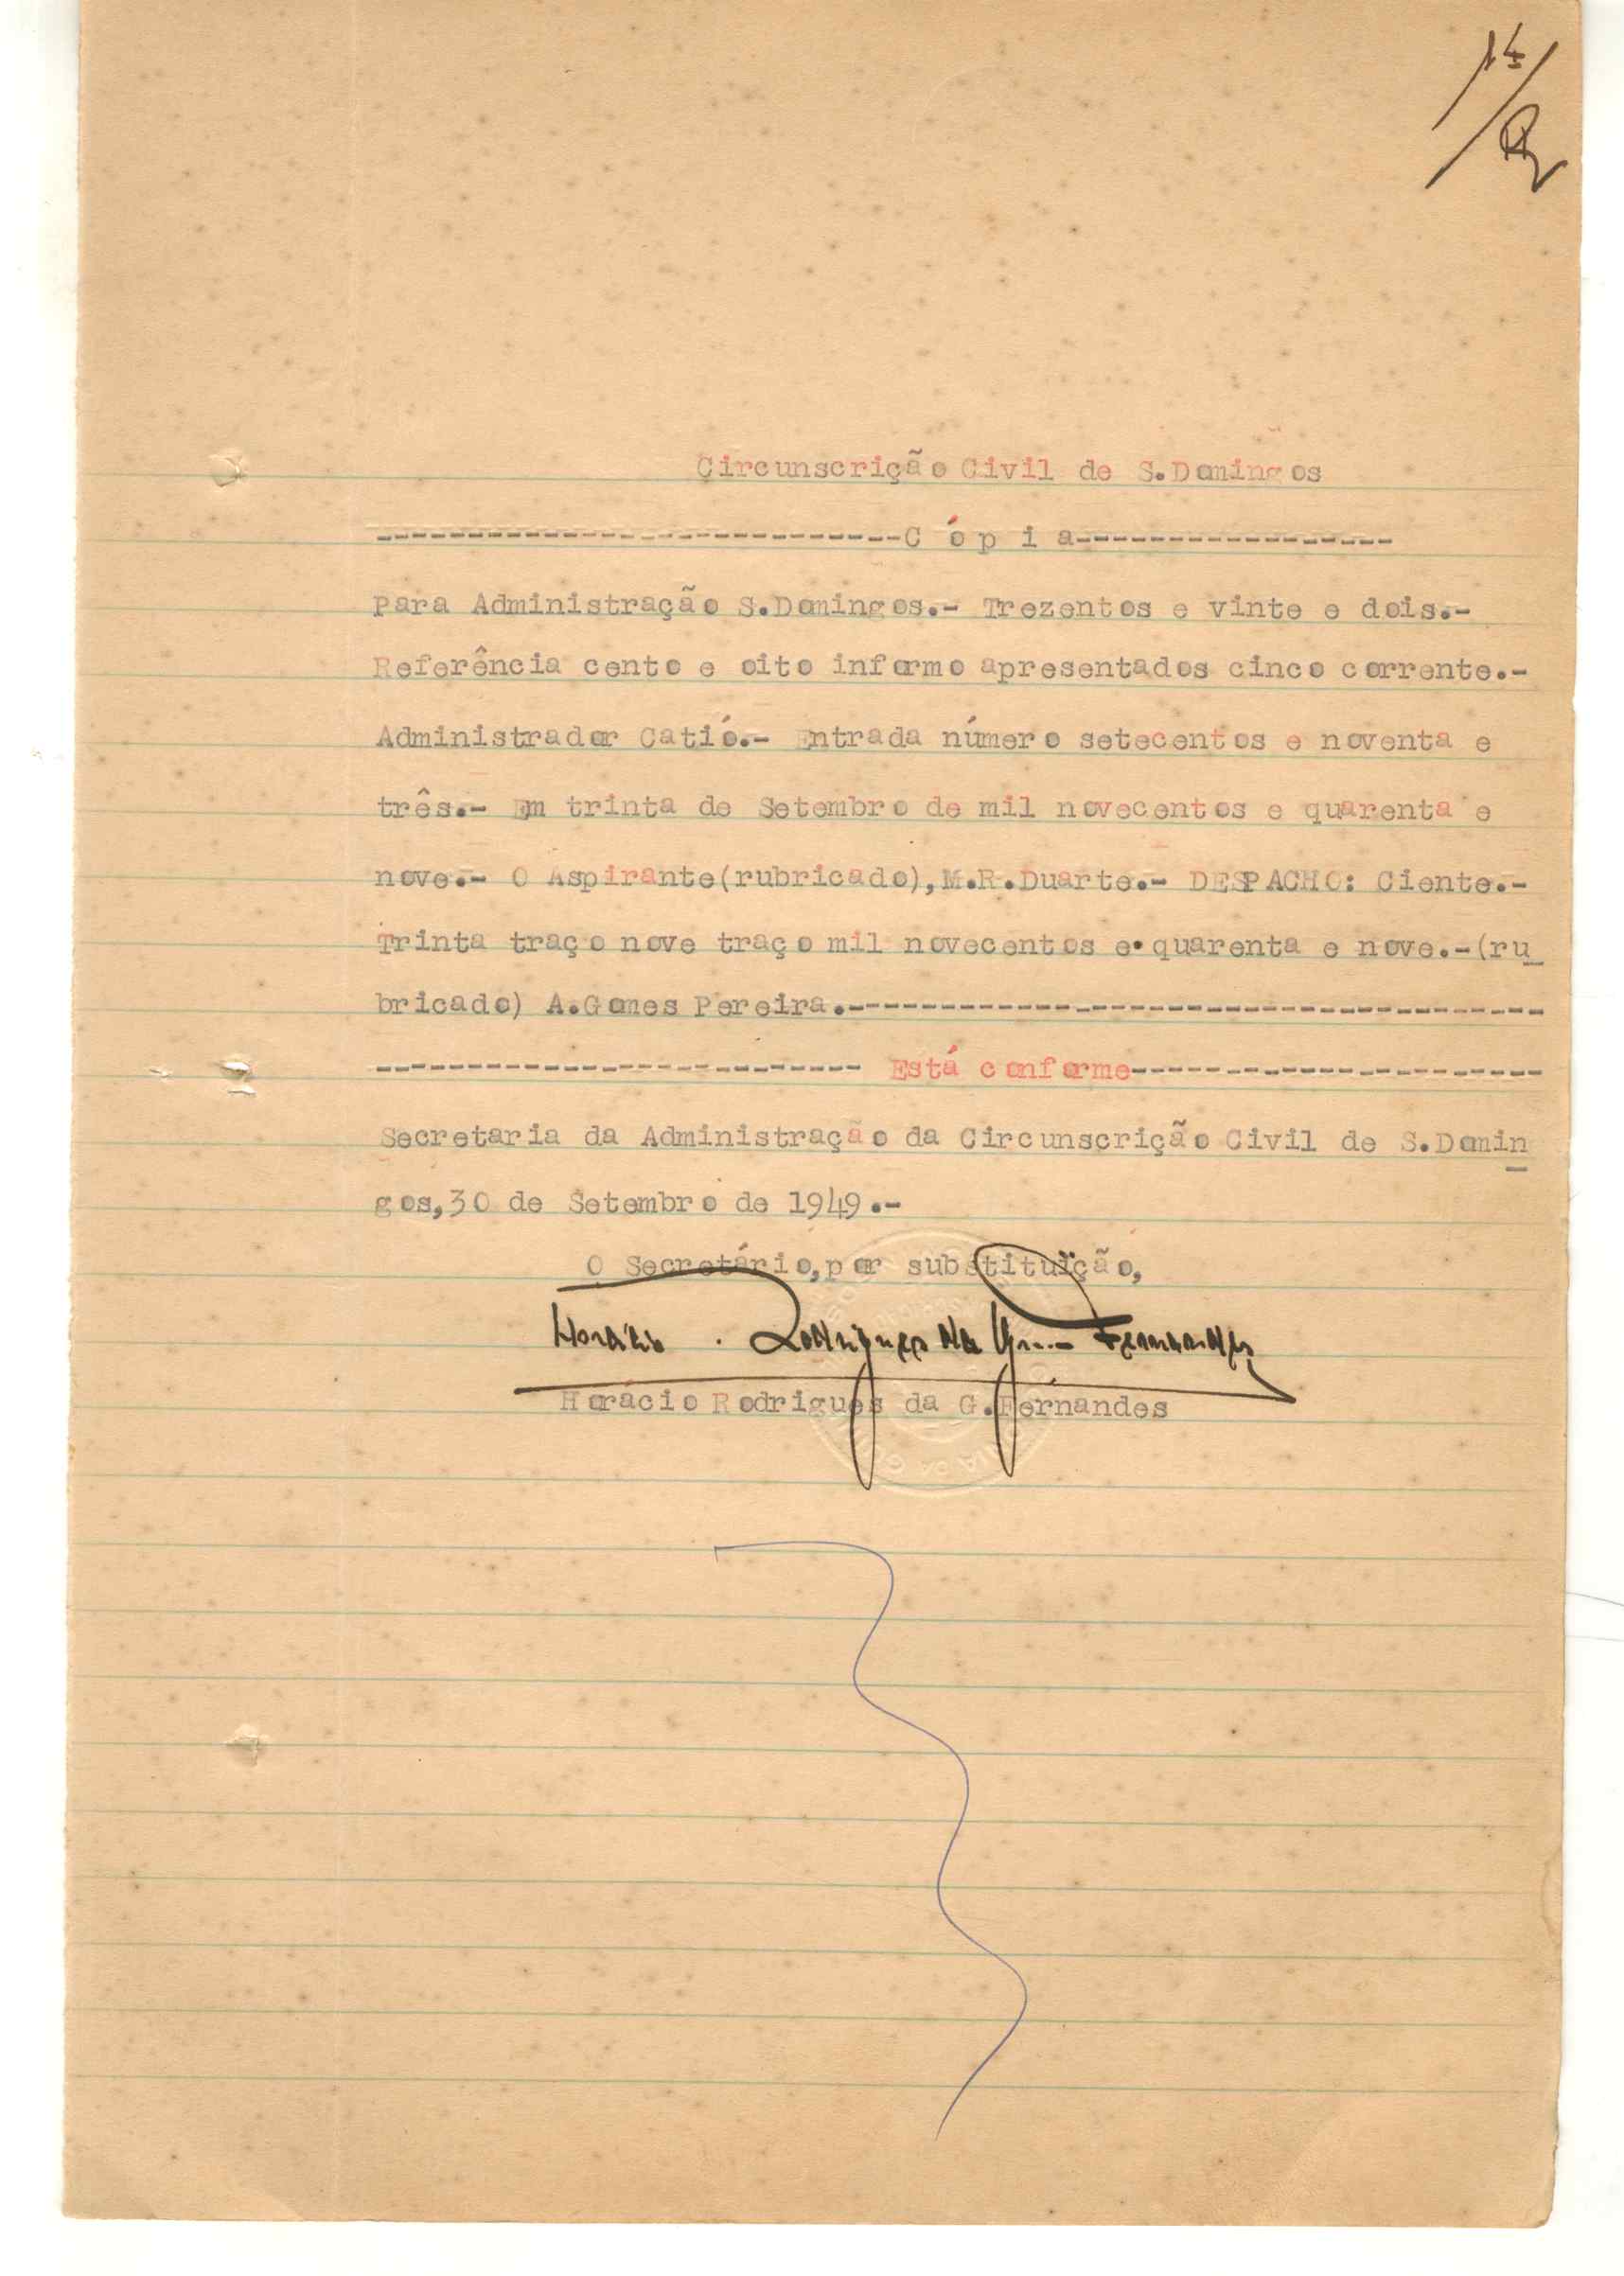 14
Circunscrição Civil de S.Domingos
-----------------------------C ó p i a------------------
Para Administração S.Domingos.- Trezentos e vinte e dois.-
Referência cento e oito informo apresentados cinco corrente.-
Administrador Catió.- Entrada número setecentos e noventa e
três.- Em trinta de Setembro de mil novecentos e quarenta e
nove.- O Aspirante(rubricado),M.R.Duarte.- DESPACHO: Ciente.-
Trinta traço nove traço mil novecentos e quarenta e nove.-(ru
bricado) A.Gomes Pereira.---------------------------------------
--------------------------- Está conforme-----------------------
Secretaria da Administração da Circunscrição Civil de S.Domin
gos,30 de Setembro de 1949.-
O Secretário,por substituïção,
Horácio Rodrigues da Fernandes
Horácio Rodrigues da G.Fernandes